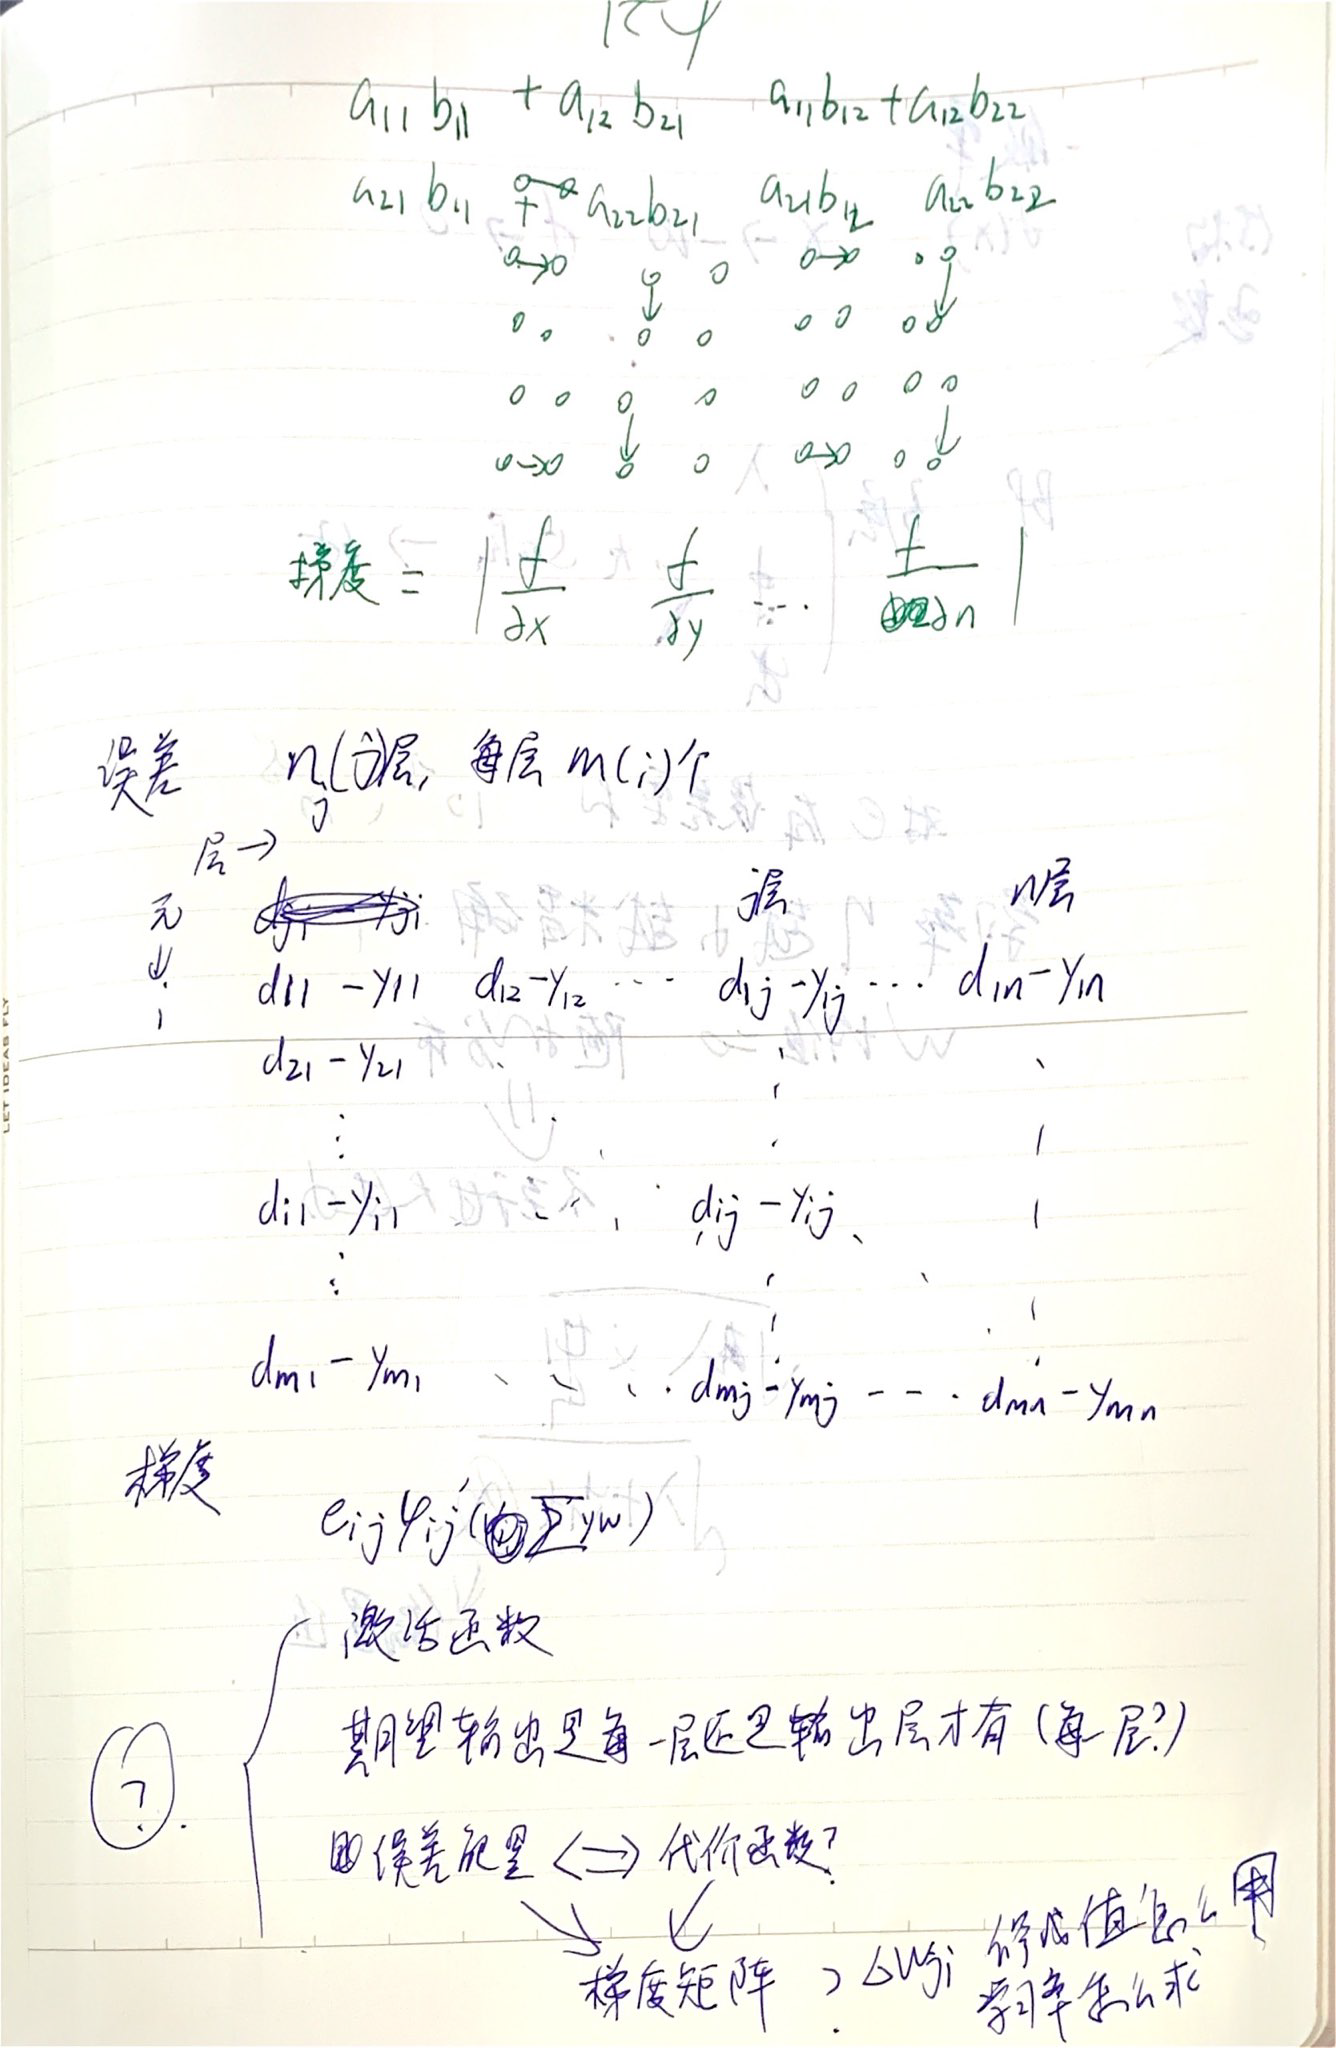 a11 b11 + a12 b21 a11b12 + a12b22
a21 b11 + a22b21 a21b12 a22b22
梯度 = | f/∂x f/∂y ... f/∂n |
误差 n(j)层, 每层 m(i)个
j
层→
元 j层 n层
↓
i
d11 - y11 d12 - y12 ... d1j - y1j ... d1n - y1n
d21 - y21
di1 - yi1 dij - yij
dm1 - ym1 .... dmj - ymj --- . dmn - ymn
梯度
eij φij'(Σyw)
激活函数
期望输出是每一层还是输出层才有(每一层?)
?
即误差能量 <=> 代价函数?
梯度矩阵 ΔWji 修改值怎么用
学习率怎么求
LET IDEAS FLY